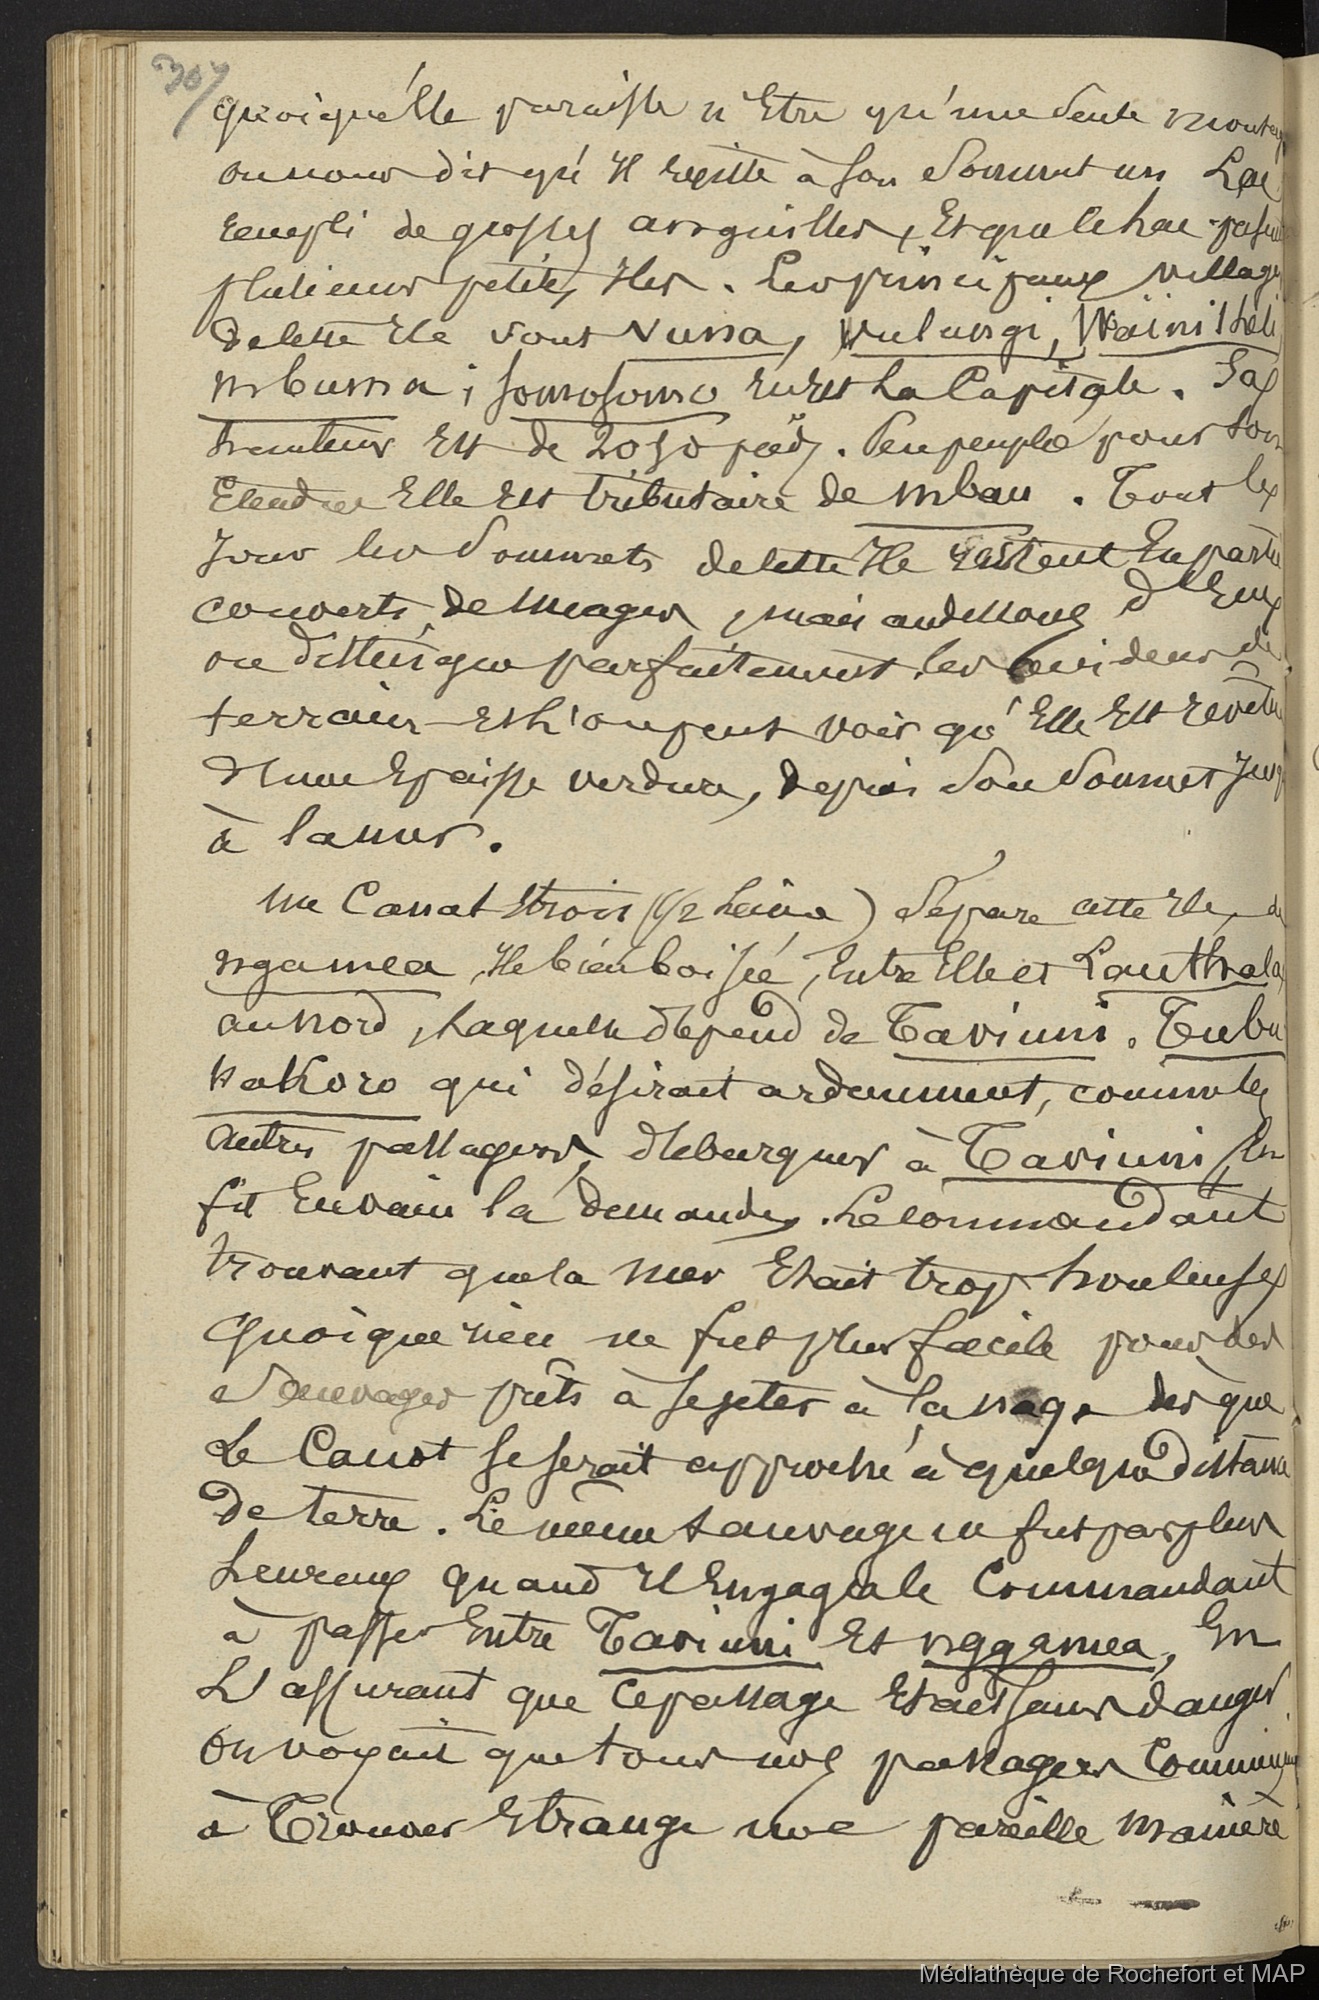 307
quoiqu'Elle paraisse n'Etre qu'une seule montag
on nous dit qu'il existe à son sommet un Lac
rempli de grosses anguilles, Et que le Lac
plusieurs petites Iles. Les principaux villages
de cette Ile sont Vuna, Vulungi, Waïni Kéli
mbuma; Somosomo en Est La Capitale. Sa
hauteur Est de 2050 pieds. Peu peuplé pour son
Etendue Elle Est tributaire de Mbau. Tous les
jours les Sommets de cette Ile restent En partie
couverts de nuages, mais audessous d'Eux
on distingue parfaitement les accidens de
terrain Et L'on peut voir qu'Elle Est revêtue
d'une Epaisse verdure, depuis Son Sommet jusq
à la mer.
un Canal Etroit (1/2 Lieue) Sépare cette Ile, de
ngamea, Ile bien boisée, Entre Elle et Lauthala
au nord, Laquelle dépend de Taviuni. Tubu
nakoro qui désirait ardemment, comme les
autres passagers, débarquer à Taviuni, En
fit En vain la demande. Le Commandant
trouvant que la mer Etait trop houleuse,
Quoique rien ne fut plus facile pour des
Sauvages prêts à se jeter à la nage dès que
Le Canot se serait approché à quelque distance
de terre. Le même sauvage ne fut pas plus
heureux quand il Engagea le Commandant
à passer Entre Taviuni Et nggamea, En
L'assurant que ce passage Etait sans danger.
on voyait que tous nos passagers Commençaient
à Trouver Etrange une pareille manière
Médiathèque de Rochefort et MAP